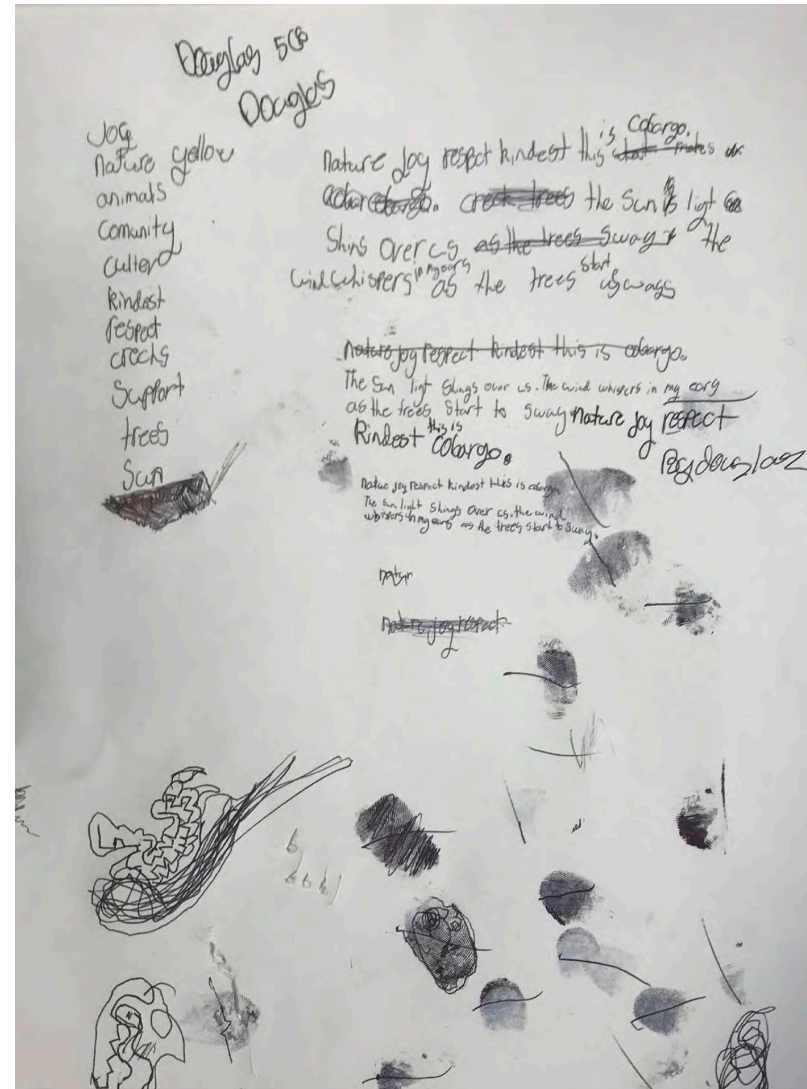 Douglas 5CB
Douglas
Joy
nature yellow
animals
Comunity
Culter
kindest
respect
creeks
Support
trees
Sun
is Cobargo.
nature Joy respect kindest this what makes
cobargo. creek trees the Sun is light
Shins over us as the trees Sway the
wind whispers in my ears as the trees start sways
nature joy respect kindest this is cobargo.
The Sun light Shings over us. The wind whispers in my ears
as the trees Start to Sway nature joy respect
Kindest this is Cobargo.
By douglas
Natue joy respect kindest this is cobargo
The Sun light Shings Over us. the wind
whispers in my ears as the trees start to Sway.
natur
nature joy respect